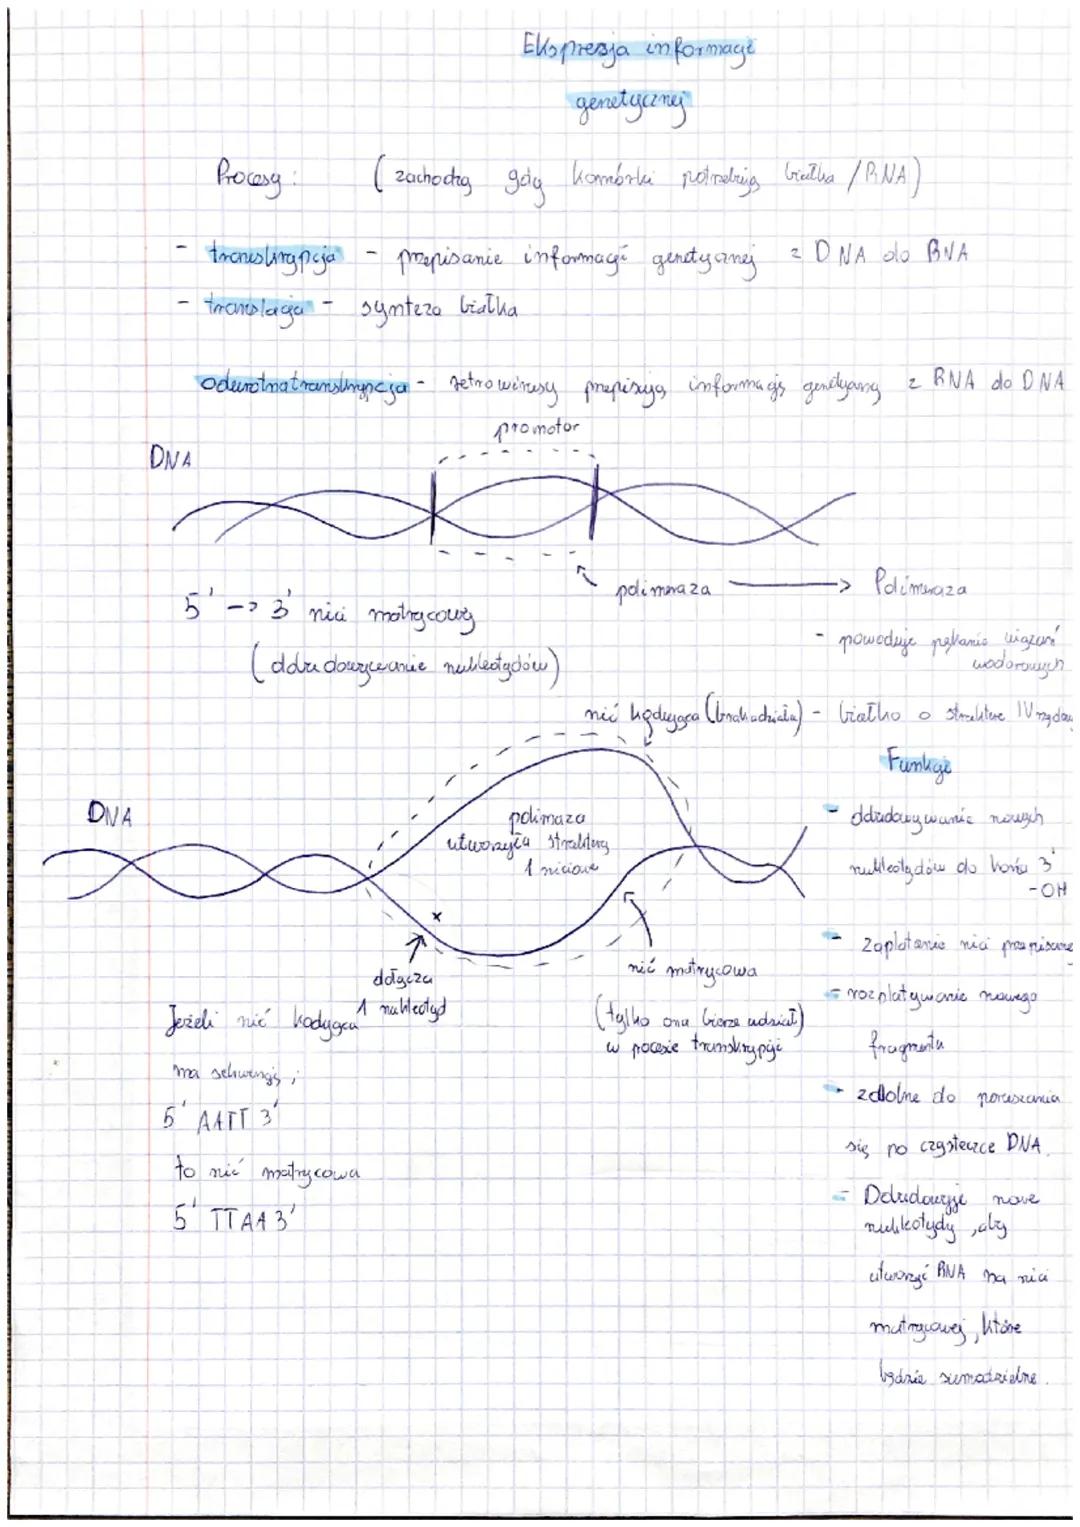 Ekspresja informacji
genetycznej
Procesy: (zachodzą gdy komórki potrzebują białka / RNA)
- transkrypcja - przepisanie informacji genetycznej z DNA do RNA
- translacja - synteza białka
odwrotna transkrypcja - retrowirusy przepisują informację genetyczną z RNA do DNA
promotor
DNA
polimeraza → Polimeraza
5' -> 3' nici matrycowej
(dobudowywanie nukleotydów)
- powoduje pękanie wiązań
wodorowych
nić kodująca (brak udziału)
- białko o strukturze IV rzędow
Funkcje
DNA
polimaza
utworzyła strukturę
1 niciową
- dobudowywanie nowych
nukleotydów do końca 3'
-OH
x
dołącza
1 nukleotyd
nić matrycowa
(tylko ona bierze udział)
w procesie transkrypcji
- zaplatanie nici przepisanej
- rozplatywanie nowego
fragmentu
- zdolne do poruszania
się po cząsteczce DNA.
- Dobudowuje nowe
nukleotydy, aby
utworzyć RNA na nici
matrycowej, które
będzie
Jeżeli nić kodująca
ma sekwencję;
5' AATT 3'
to nić matrycowa
5' TTAA 3'